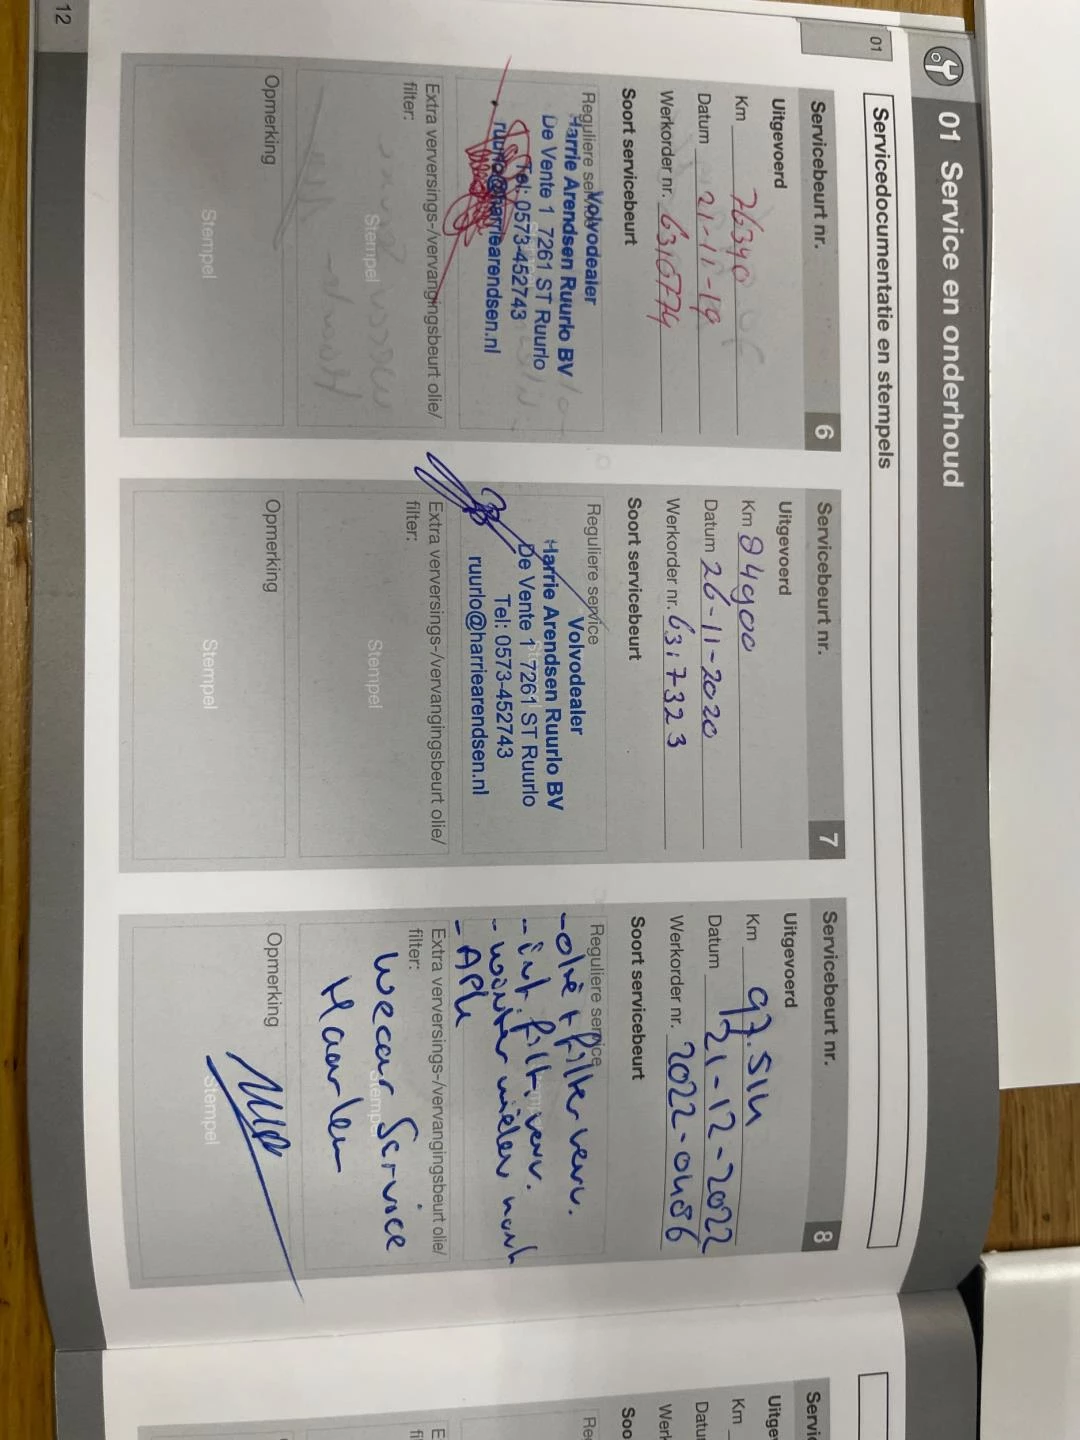 01 Service en onderhoud
01
Servicedocumentatie en stempels
Servicebeurt nr. 6
Uitgevoerd
Km 76340
Datum 21-11-19
Werkorder nr. 6316774
Soort servicebeurt
Reguliere service
Volvodealer
Harrie Arendsen Ruurlo BV
De Vente 1 7261 ST Ruurlo
Tel: 0573-452743
ruurlo@harriearendsen.nl
Extra verversings-/vervangingsbeurt olie/
filter:
Stempel
Opmerking
Stempel
Servicebeurt nr. 7
Uitgevoerd
Km 84900
Datum 26-11-2020
Werkorder nr. 6317323
Soort servicebeurt
Reguliere service
Volvodealer
Harrie Arendsen Ruurlo BV
De Vente 1 7261 ST Ruurlo
Tel: 0573-452743
ruurlo@harriearendsen.nl
Extra verversings-/vervangingsbeurt olie/
filter:
Stempel
Opmerking
Stempel
Servicebeurt nr. 8
Uitgevoerd
Km 97.514
Datum 21-12-2022
Werkorder nr. 2022-0486
Soort servicebeurt
Reguliere service
- olie + filter verv.
- int. filt. verv.
- winter wielen
- APK
Extra verversings-/vervangingsbeurt olie/
filter:
Wecar Service
Haarlem
Stempel
Opmerking
Stempel
12